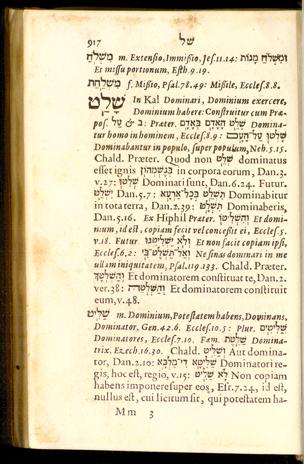 917 שׁל
מִשְׁלַח m. Extensio, Immissio, Jes. 11.14: וּמִשְׁלֹחַ מָנוֹת
Et missu portionum, Esth. 9.19.
מִשְׁלַחַת f. Missio, Psal. 78.49: Missile, Eccles. 8.8.
שָׁלַט In Kal Dominari, Dominium exercere,
Dominium habere: Construitur cum Præ-
pos. עַל & ב: Præter. שָׁלַט הָאָדָם בְּאָדָם Domina-
tur homo in hominem, Eccles. 8.9:
Dominabantur in populo, super populum, Neh. 5.15.
Chald. Præter. Quod non שְׁלֵט dominatus
esset ignis בְּגֶשְׁמְהוֹן in corpora eorum, Dan. 3.
v. 27: שְׁלִטוּ Dominati sunt, Dan. 6.24. Futur.
יִשְׁלַט Dan. 5.7: תִּשְׁלַט בְּכָל־אַרְעָא Dominabitur
in tota terra, Dan. 2.39: תִּשְׁלַט Dominaberis,
Dan. 5.16. Ex Hiphil Præter. וְהִשְׁלִיטוֹ Et domi-
num, id est, copiam fecit vel concessit ei, Eccles. 5.
v. 18. Futur וְלֹא יַשְׁלִיטֶנּוּ Et non facit copiam ipsi,
Eccles. 6.2: וְאַל־תַּשְׁלֶט־בִּי Ne sinas dominari in me
ullam iniquitatem, Psal. 119.133. Chald. Præter.
וְהַשְׁלְטָךְ Et dominatorem constituat te, Dan. 2.
ver. 38: Et dominatorem constituit
eum, v. 48.
שַׁלִּיט m. Dominium, Potestatem habens, Dominans,
Dominator, Gen. 42.6. Eccles. 10.5: Plur. שַׁלִּיטִים
Dominatores, Eccles. 7.10. Fœm. שַׁלֶּטֶת Domina-
trix. Ezech. 16.30. Chald. וְשַׁלִּיט Aut domina-
tor, Dan. 2.10: שַׁלִּיטָא דִי־מַלְכָּא Dominatori re-
gis, hoc est, regio, v. 15: לָא שַׁלִּיט Non copiam
habens imponere super eos, Esr. 7.24, id est,
nullus est, cui licitum sit, qui potestatem ha-
M m 3